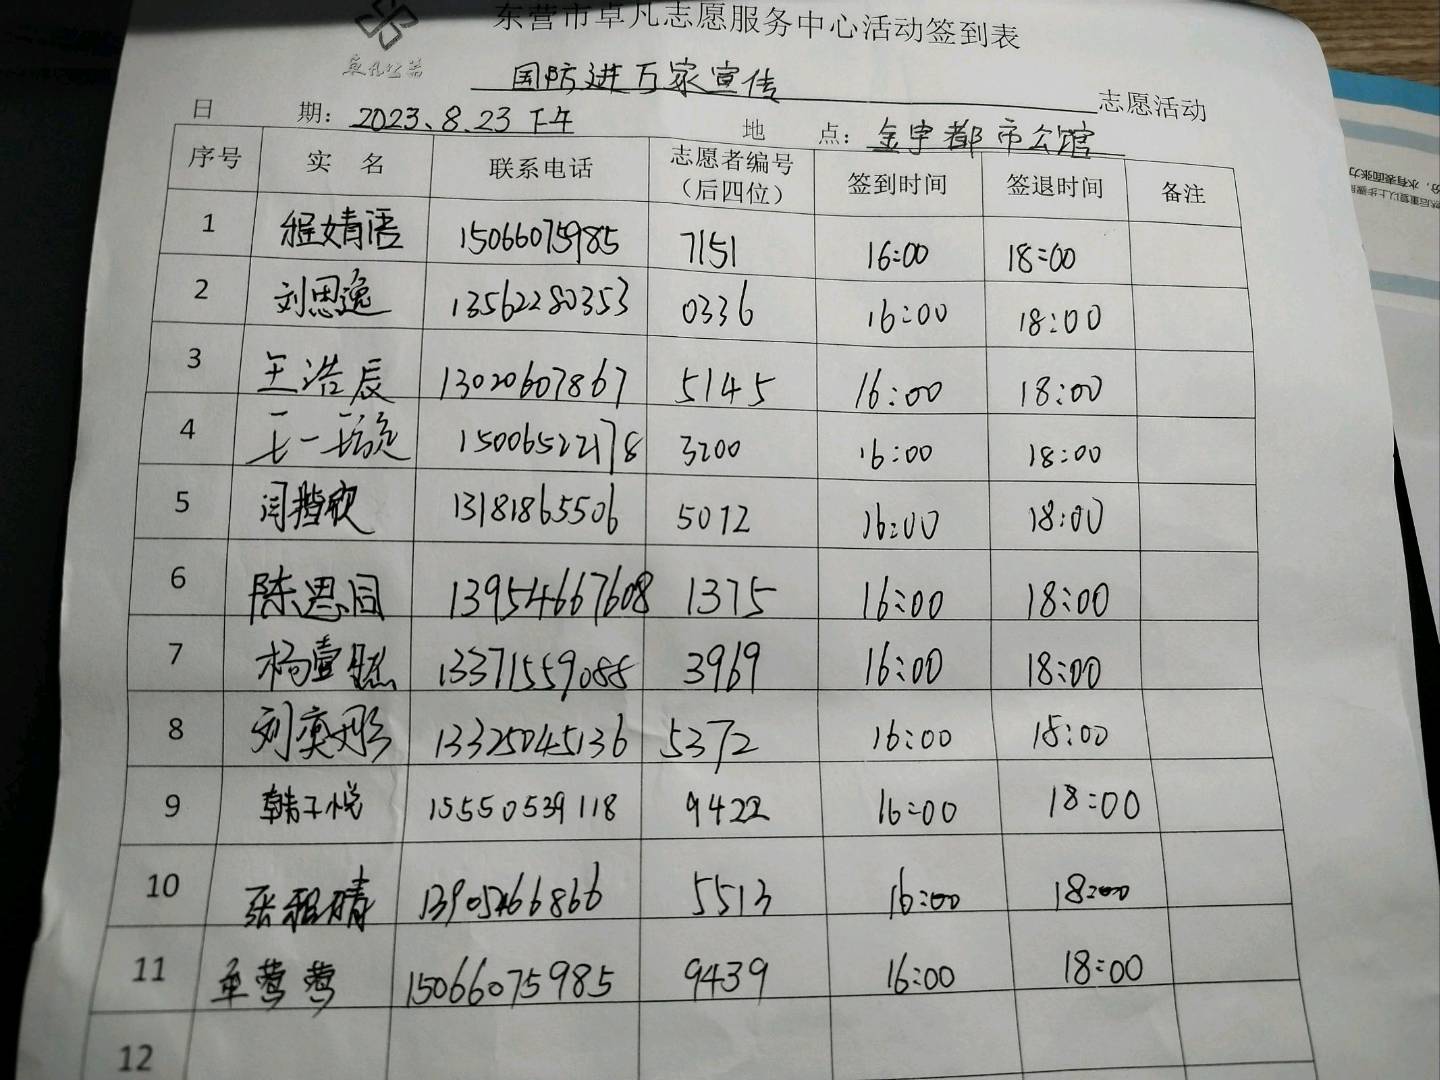 东营市卓凡志愿服务中心活动签到表
卓凡公益
国防进万家宣传 志愿活动
日 期: 2023.8.23下午 地 点: 金宇都市公馆
序号 实 名 联系电话 志愿者编号（后四位） 签到时间 签退时间 备注
1 程婧语 15066075985 7151 16:00 18:00
2 刘思逸 13562280353 0336 16:00 18:00
3 王浩辰 13020607867 5145 16:00 18:00
4 15006522178 3200 16:00 18:00
5 13181865506 5012 16:00 18:00
6 陈思同 13954667608 1375 16:00 18:00
7 13371559088 3969 16:00 18:00
8 刘奕彤 13325045136 5372 16:00 18:00
9 韩子悦 15550539118 9422 16:00 18:00
10 5513 16:00 18:00
11 单莺莺 15066075985 9439 16:00 18:00
12
分，水有表面张力
然后重复以上步骤